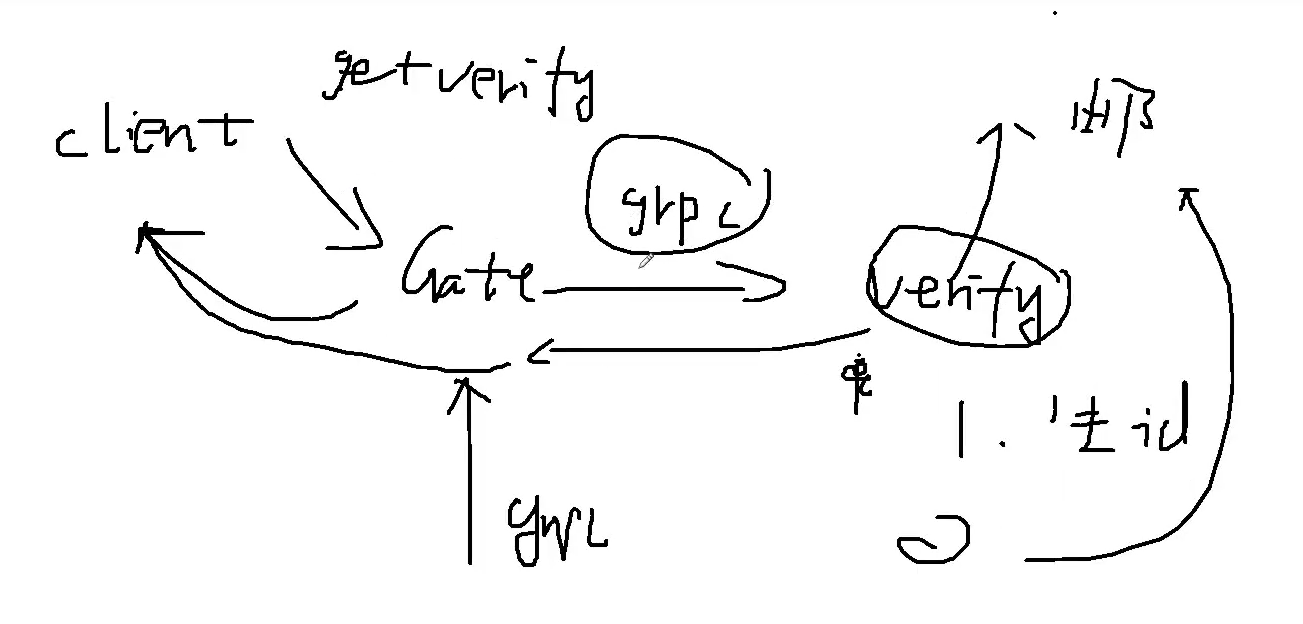 getverify
client
grpc
Gate
verify
1. 生id
2
grpc